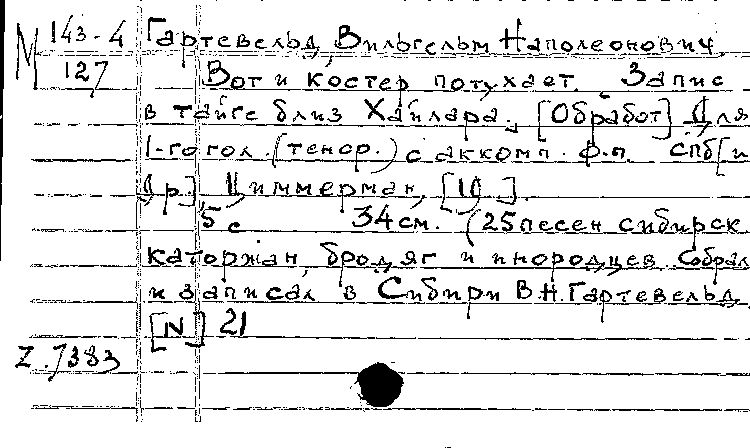 М 143-4 Гартевельд, Вильгельм Наполеонович.
127 Вот и костер потухает. Запис
в тайге близ Хайлара. [Обработ] Для
1-го гол. (тенор.) с аккомп. ф.п. СПб [и
др.], Циммерман, [Ц].
5 с 34 см. (25 песен сибирск
каторжан, бродяг и инородцев. Собрал
и записал в Сибири В.Н. Гартевельд.
[N] 21
Z.7383